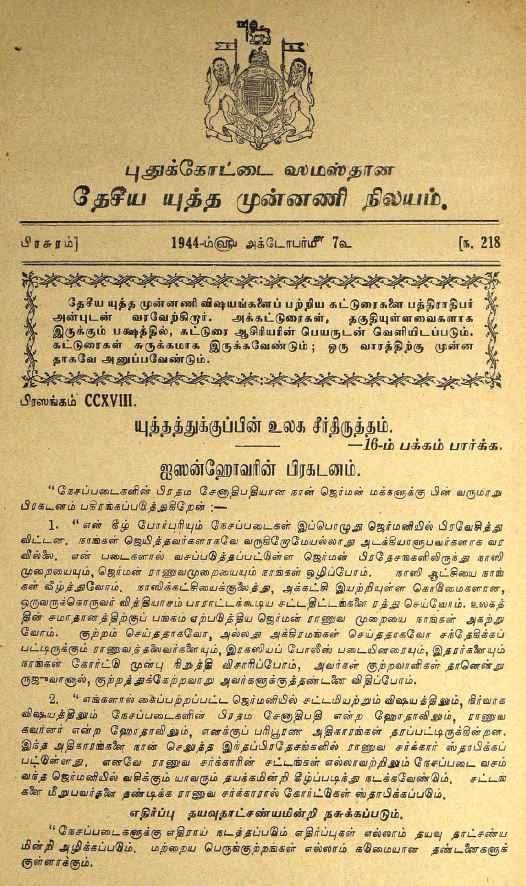 புதுக்கோட்டை ஸமஸ்தான
தேசீய யுத்த முன்னணி நிலயம்.
பிரசுரம்] 1944-ம்௵ அக்டோபர்௴ 7௳ [ந. 218
தேசீய யுத்த முன்னணி விஷயங்களைப் பற்றிய கட்டுரைகளை பத்திராதிபர்
அன்புடன் வரவேற்கிறார். அக்கட்டுரைகள், தகுதியுள்ளவைகளாக
இருக்கும் பக்ஷத்தில், கட்டுரை ஆசிரியரின் பெயருடன் வெளியிடப்படும்.
கட்டுரைகள் சுருக்கமாக இருக்கவேண்டும் ; ஒரு வாரத்திற்கு முன்ன
தாகவே அனுப்பவேண்டும்.
பிரஸங்கம் CCXVIII.
யுத்தத்துக்குப்பின் உலக சீர்திருத்தம்.
—16-ம் பக்கம் பார்க்க.
ஐஸன்ஹோவரின் பிரகடனம்.
"நேசப்படைகளின் பிரதம சேனாதிபதியான நான் ஜெர்மன் மக்களுக்கு பின் வருமாறு
பிரகடனம் பகிரங்கப்படுத்துகிறேன் :—
1. "என் கீழ் போர்புரியும் நேசப்படைகள் இப்பொழுது ஜெர்மனியில் பிரவேசித்து
விட்டன. நாங்கள் ஜெயித்தவர்களாகவே வருகிறோமேயல்லாது அடக்கியாளுபவர்களாக வர
வில்லை. என் படைகளால் வசப்படுத்தப்பட்டுள்ள ஜெர்மன் பிரதேசங்களிலிருந்து நாஸி
முறையையும், ஜெர்மன் ராணுவமுறையையும் நாங்கள் ஒழிப்போம். நாஸி ஆட்சியை நாங்
கள் வீழ்த்துவோம். நாஸிக்கட்சியைக்குலைத்து, அக்கட்சி இயற்றியுள்ள கொடுமைகளான,
ஒருவருக்கொருவர் வித்தியாசம் பாராட்டக்கூடிய சட்டதிட்டங்களை ரத்து செய்வோம். உலகத்
தின் சமாதானத்திற்குப் பங்கம் ஏற்படுத்திய ஜெர்மன் ராணுவ முறையை நாங்கள் அகற்று
வோம். குற்றம் செய்ததாகவோ, அல்லது அக்கிரமங்கள் செய்ததாகவோ சந்தேகிக்கப்
பட்டிருக்கும் ராணுவத்தலைவர்களையும், இரகஸியப் போலீஸ் படையினரையும், இதரர்களையும்
நாங்கள் கோர்ட்டு முன்பு நிறுத்தி விசாரிப்போம், அவர்கள் குற்றவாளிகள் தானென்று
ருஜுவானால், குற்றத்துக்கேற்றவாறு அவர்களுக்குத்தண்டனை விதிப்போம்.
2. "எங்களால் கைப்பற்றப்பட்ட ஜெர்மனியில் சட்டமியற்றும் விஷயத்திலும், நிர்வாக
விஷயத்திலும் நேசப்படைகளின் பிரதம சேனாதிபதி என்ற ஹோதாவிலும், ராணுவ
கவர்னர் என்ற ஹோதாவிலும், எனக்குப் பரிபூரண அதிகாரங்கள் தரப்பட்டிருக்கின்றன.
இந்த அதிகாரங்களை நான் செலுத்த இந்தப்பிரதேசங்களில் ராணுவ சர்க்கார் ஸ்தாபிக்கப்
பட்டுள்ளது. எனவே ராணுவ சர்க்காரின் சட்டங்கள் எல்லாவற்றிலும் நேசப்படை வசம்
வந்த ஜெர்மனியில் வசிக்கும் யாவரும் தயக்கமின்றி கீழ்ப்படிந்து நடக்கவேண்டும். சட்டங்
களை மீறுபவர்களை தண்டிக்க ராணுவ சர்க்காரால் கோர்ட்டுகள் ஸ்தாபிக்கப்படும்.
எதிர்ப்பு தயவுதாட்சண்யமின்றி நசுக்கப்படும்.
"நேசப்படைகளுக்கு எதிராய் நடத்தப்படும் எதிர்ப்புகள் எல்லாம் தயவு தாட்சண்ய
மின்றி அழிக்கப்படும். மற்றைய பெருங்குற்றங்கள் எல்லாம் கடுமையான தண்டனைகளுக்
குள்ளாக்கும்.